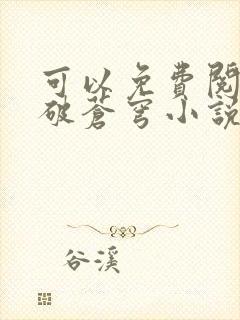 可以免費閱
破蒼穹小說
谷溪